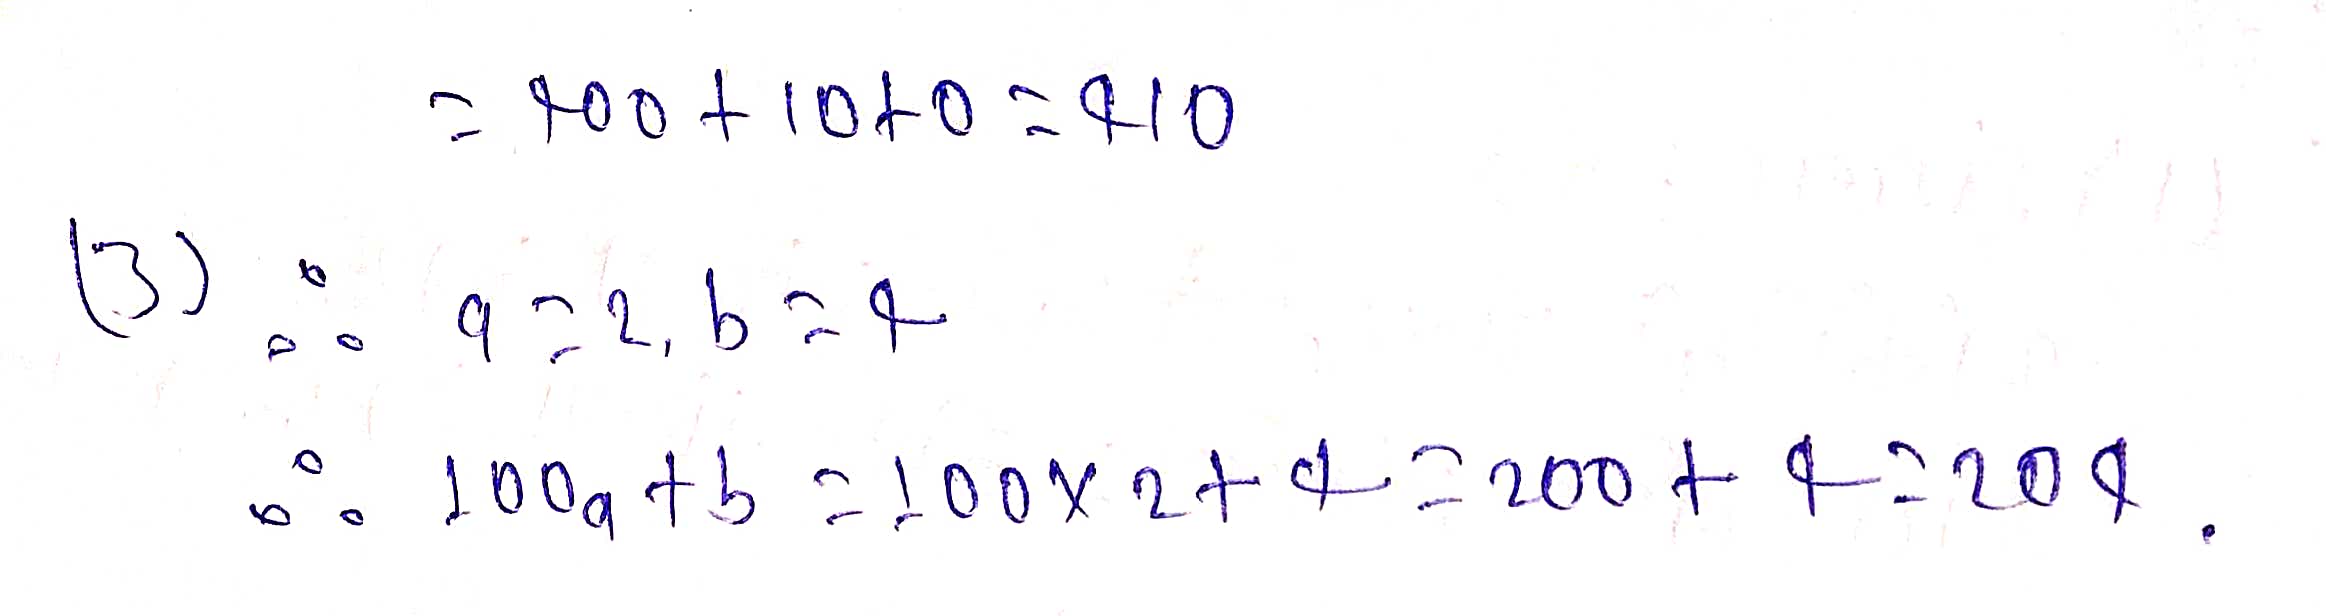 = 400 + 10 + 0 = 410
(3) ∴ a = 2, b = 4
∴ 100a + b = 100 × 2 + 4 = 200 + 4 = 204.